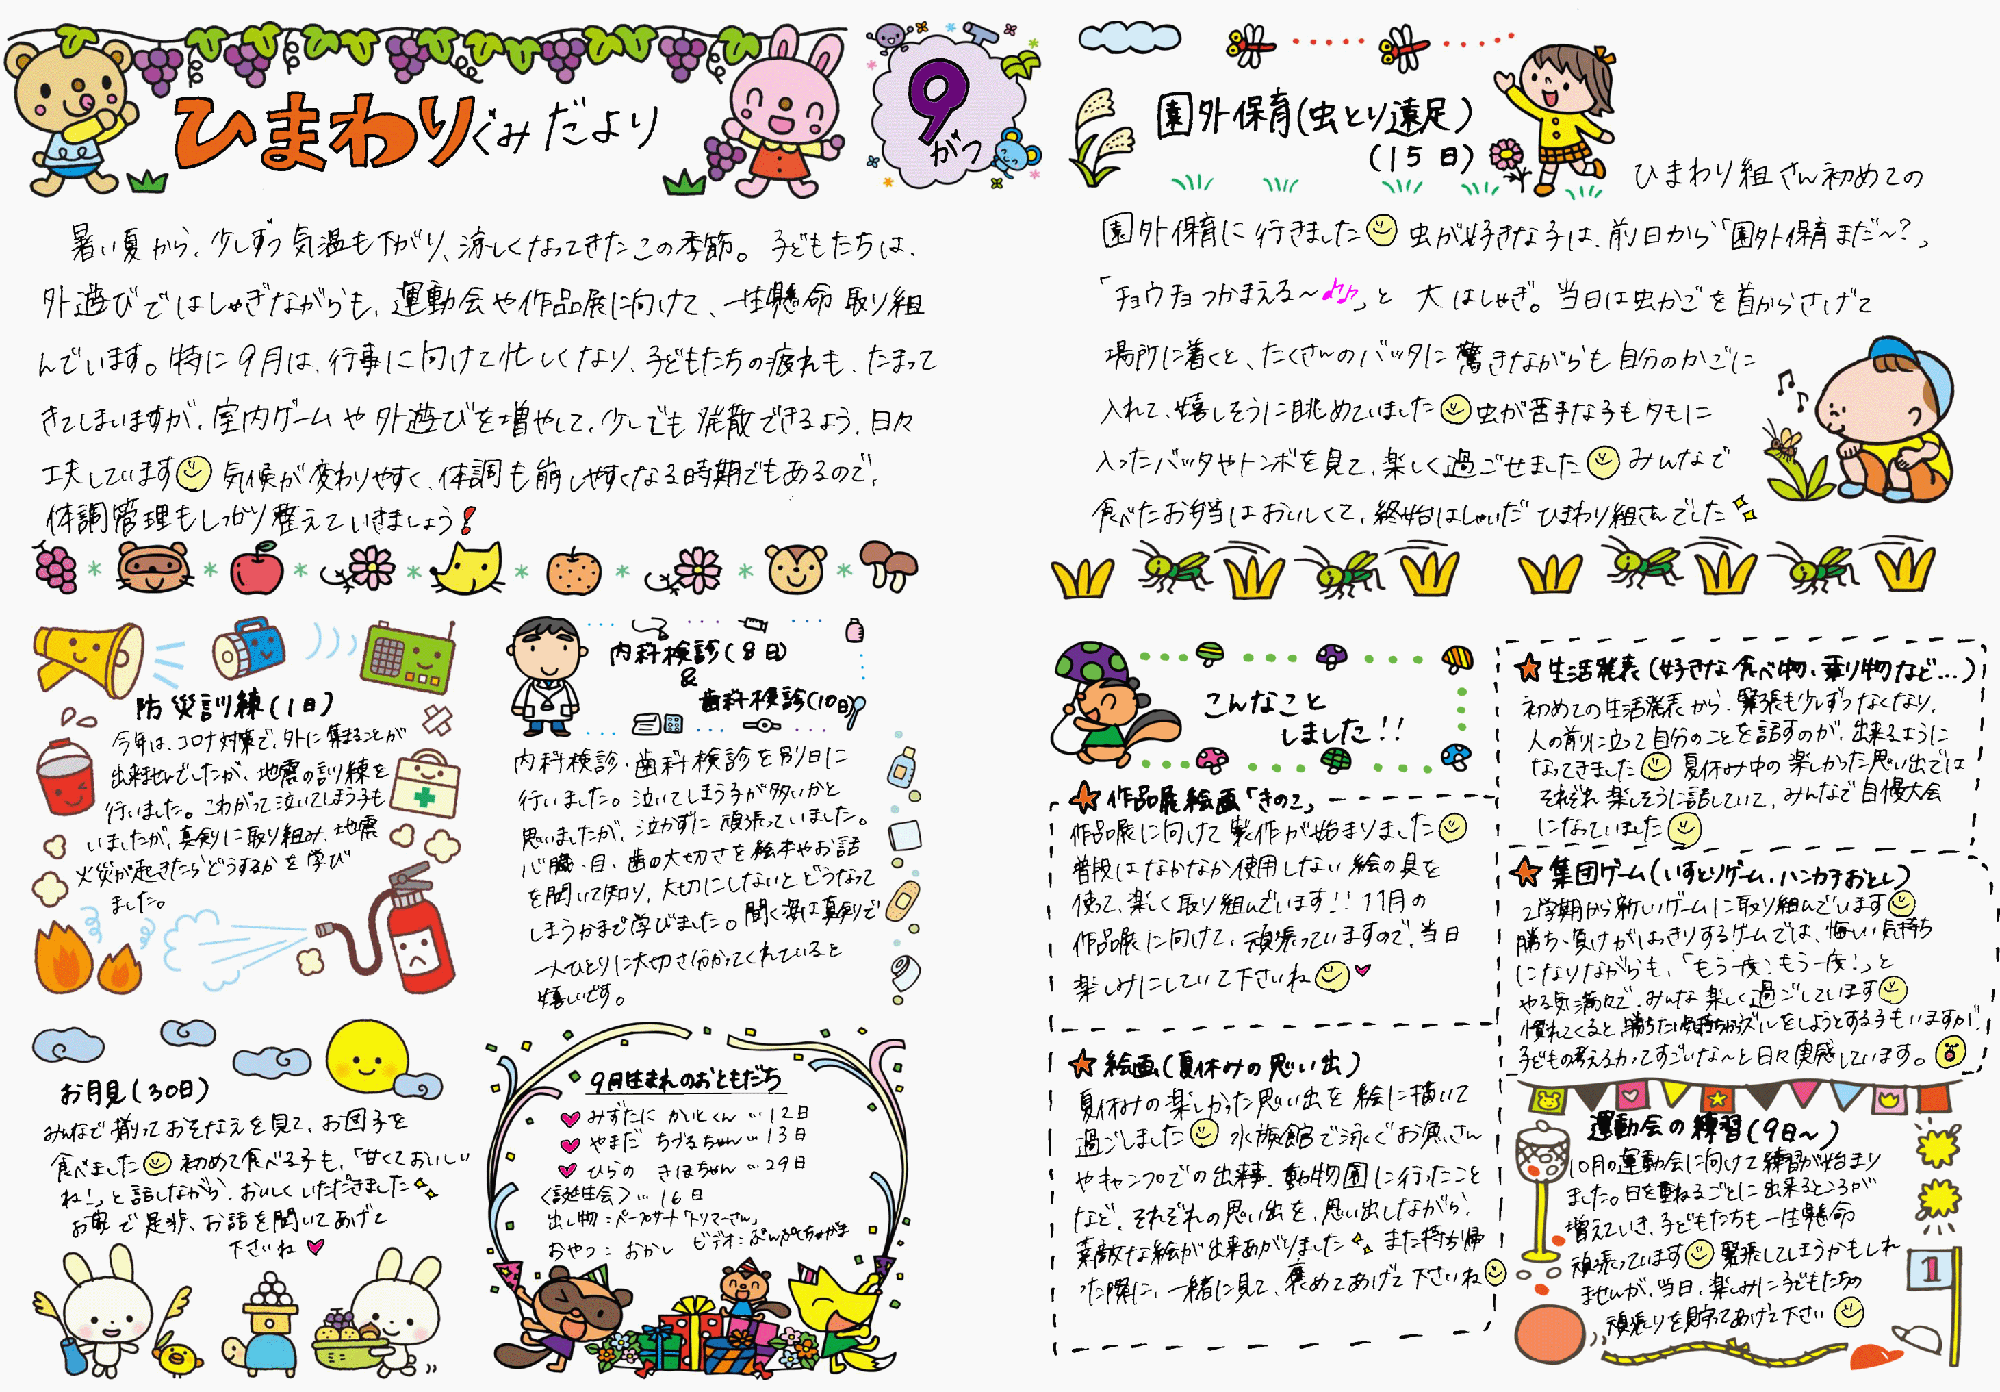 ひまわりぐみだより
9がつ
暑い夏から、少しずつ気温も下がり、涼しくなってきたこの季節。子どもたちは、
外遊びではしゃぎながらも、運動会や作品展に向けて、一生懸命取り組
んでいます。特に9月は、行事に向けて忙しくなり、子どもたちの疲れも、たまって
きてしまいますが、室内ゲームや外遊びを増やして、少しでも発散できるよう、日々
工夫しています 気候が変わりやすく、体調も崩しやすくなる時期でもあるので、
体調管理もしっかり整えていきましょう!
防災訓練(1日)
今年は、コロナ対策で、外に集まることが
出来ませんでしたが、地震の訓練を
行いました。こわがって泣いてしまう子も
いましたが、真剣に取り組み、地震
火災が起きたらどうするかを学び
ました。
内科検診(8日)
&
歯科検診(10日)
内科検診・歯科検診を別日に
行いました。泣いてしまう子が多いかと
思いましたが、泣かずに頑張っていました。
心臓・目・歯の大切さを絵本やお話
を聞いて知り、大切にしないとどうなって
しまうかまで学びました。聞く姿は真剣で
一人ひとりに大切さ分かってくれていると
嬉しいです。
お月見(30日)
みんなで揃っておそなえを見て、お団子を
食べました 初めて食べる子も、「甘くておいしい
ね!」と話しながら、おいしくいただきました
お家で是非、お話を聞いてあげて
下さいね
9月生まれのおともだち
みずたに かいとくん…12日
やまだ ちづるちゃん…13日
ひらの きほちゃん…29日
〈誕生会〉…16日
出し物:ペープサート「トリマーさん」
おやつ:おかし ビデオ:ぶんぶくちゃがま
園外保育(虫とり遠足)
(15日)
ひまわり組さん初めての
園外保育に行きました 虫が好きな子は、前日から「園外保育まだ～?」
「チョウチョつかまえる～♪♪」と 大はしゃぎ。当日は虫かごを首からさげて
場所に着くと、たくさんのバッタに驚きながらも自分のかごに
入れて、嬉しそうに眺めていました 虫が苦手な子もタモに
入ったバッタやトンボを見て、楽しく過ごせました みんなで
食べたお弁当はおいしくて、終始はしゃいだひまわり組さんでした
こんなこと
しました!!
★作品展絵画「きのこ」
作品展に向けて製作が始まりました
普段はなかなか使用しない絵の具を
使って、楽しく取り組んでいます!!11月の
作品展に向けて、頑張っていますので、当日
楽しみにしていて下さいね
★絵画(夏休みの思い出)
夏休みの楽しかった思い出を絵に描いて
過ごしました 水族館で泳ぐお魚さん
やキャンプでの出来事、動物園に行ったこと
など、それぞれの思い出を、思い出しながら、
素敵な絵が出来あがりました また持ち帰
った際に、一緒に見て、褒めてあげて下さいね
★生活発表(好きな食べ物・乗り物など…)
初めての生活発表から、緊張も少しずつなくなり、
人の前に立って自分のことを話すのが、出来るように
なってきました 夏休み中の楽しかった思い出では
それぞれ楽しそうに話していて、みんなで自慢大会
になっていました
★集団ゲーム(いすとりゲーム・ハンカチおとし)
2学期から新しいゲームに取り組んでいます
勝ち、負けがはっきりするゲームでは、悔しい気持ち
になりながらも、「もう一度!もう一度!」と
やる気満々で、みんな楽しく過ごしています
慣れてくると、勝ちたい気持ちからズルをしようとする子もいますが、
子どもの考える力ってすごいな～と日々実感しています。
運動会の練習(9日～)
10月の運動会に向けて練習が始まり
ました。日を重ねるごとに出来るところが
増えていき、子どもたちも一生懸命
頑張っています 緊張してしまうかもしれ
ませんが、当日、楽しみに子どもたちの
頑張りを見守ってあげて下さい
1